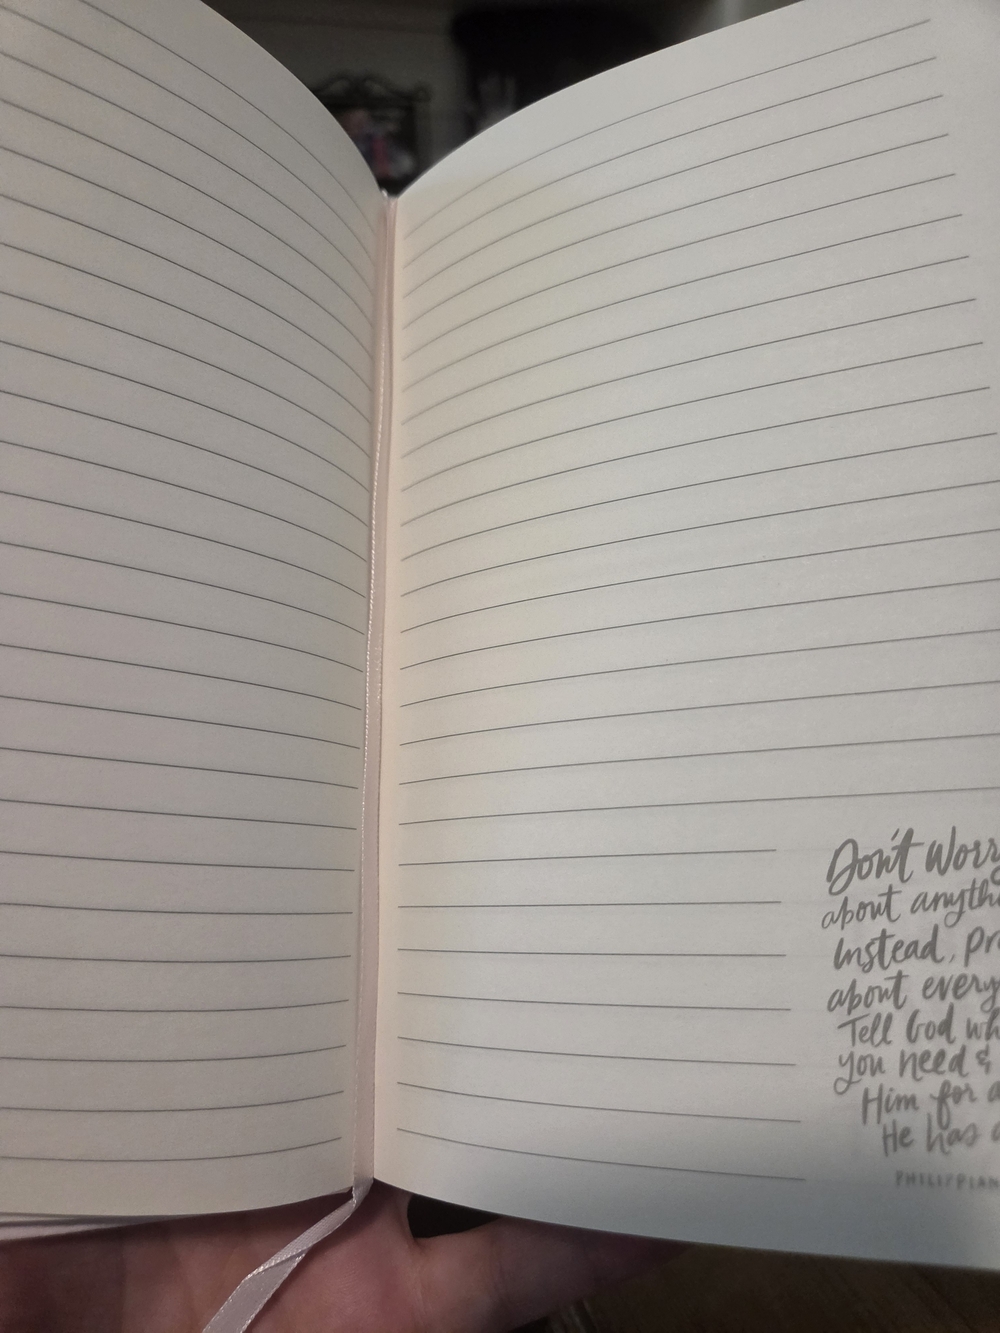 Don't Worr
about anythi
Instead, pra
about every
Tell God wh
you need &
Him for a
He has a
PHILIPPIAN